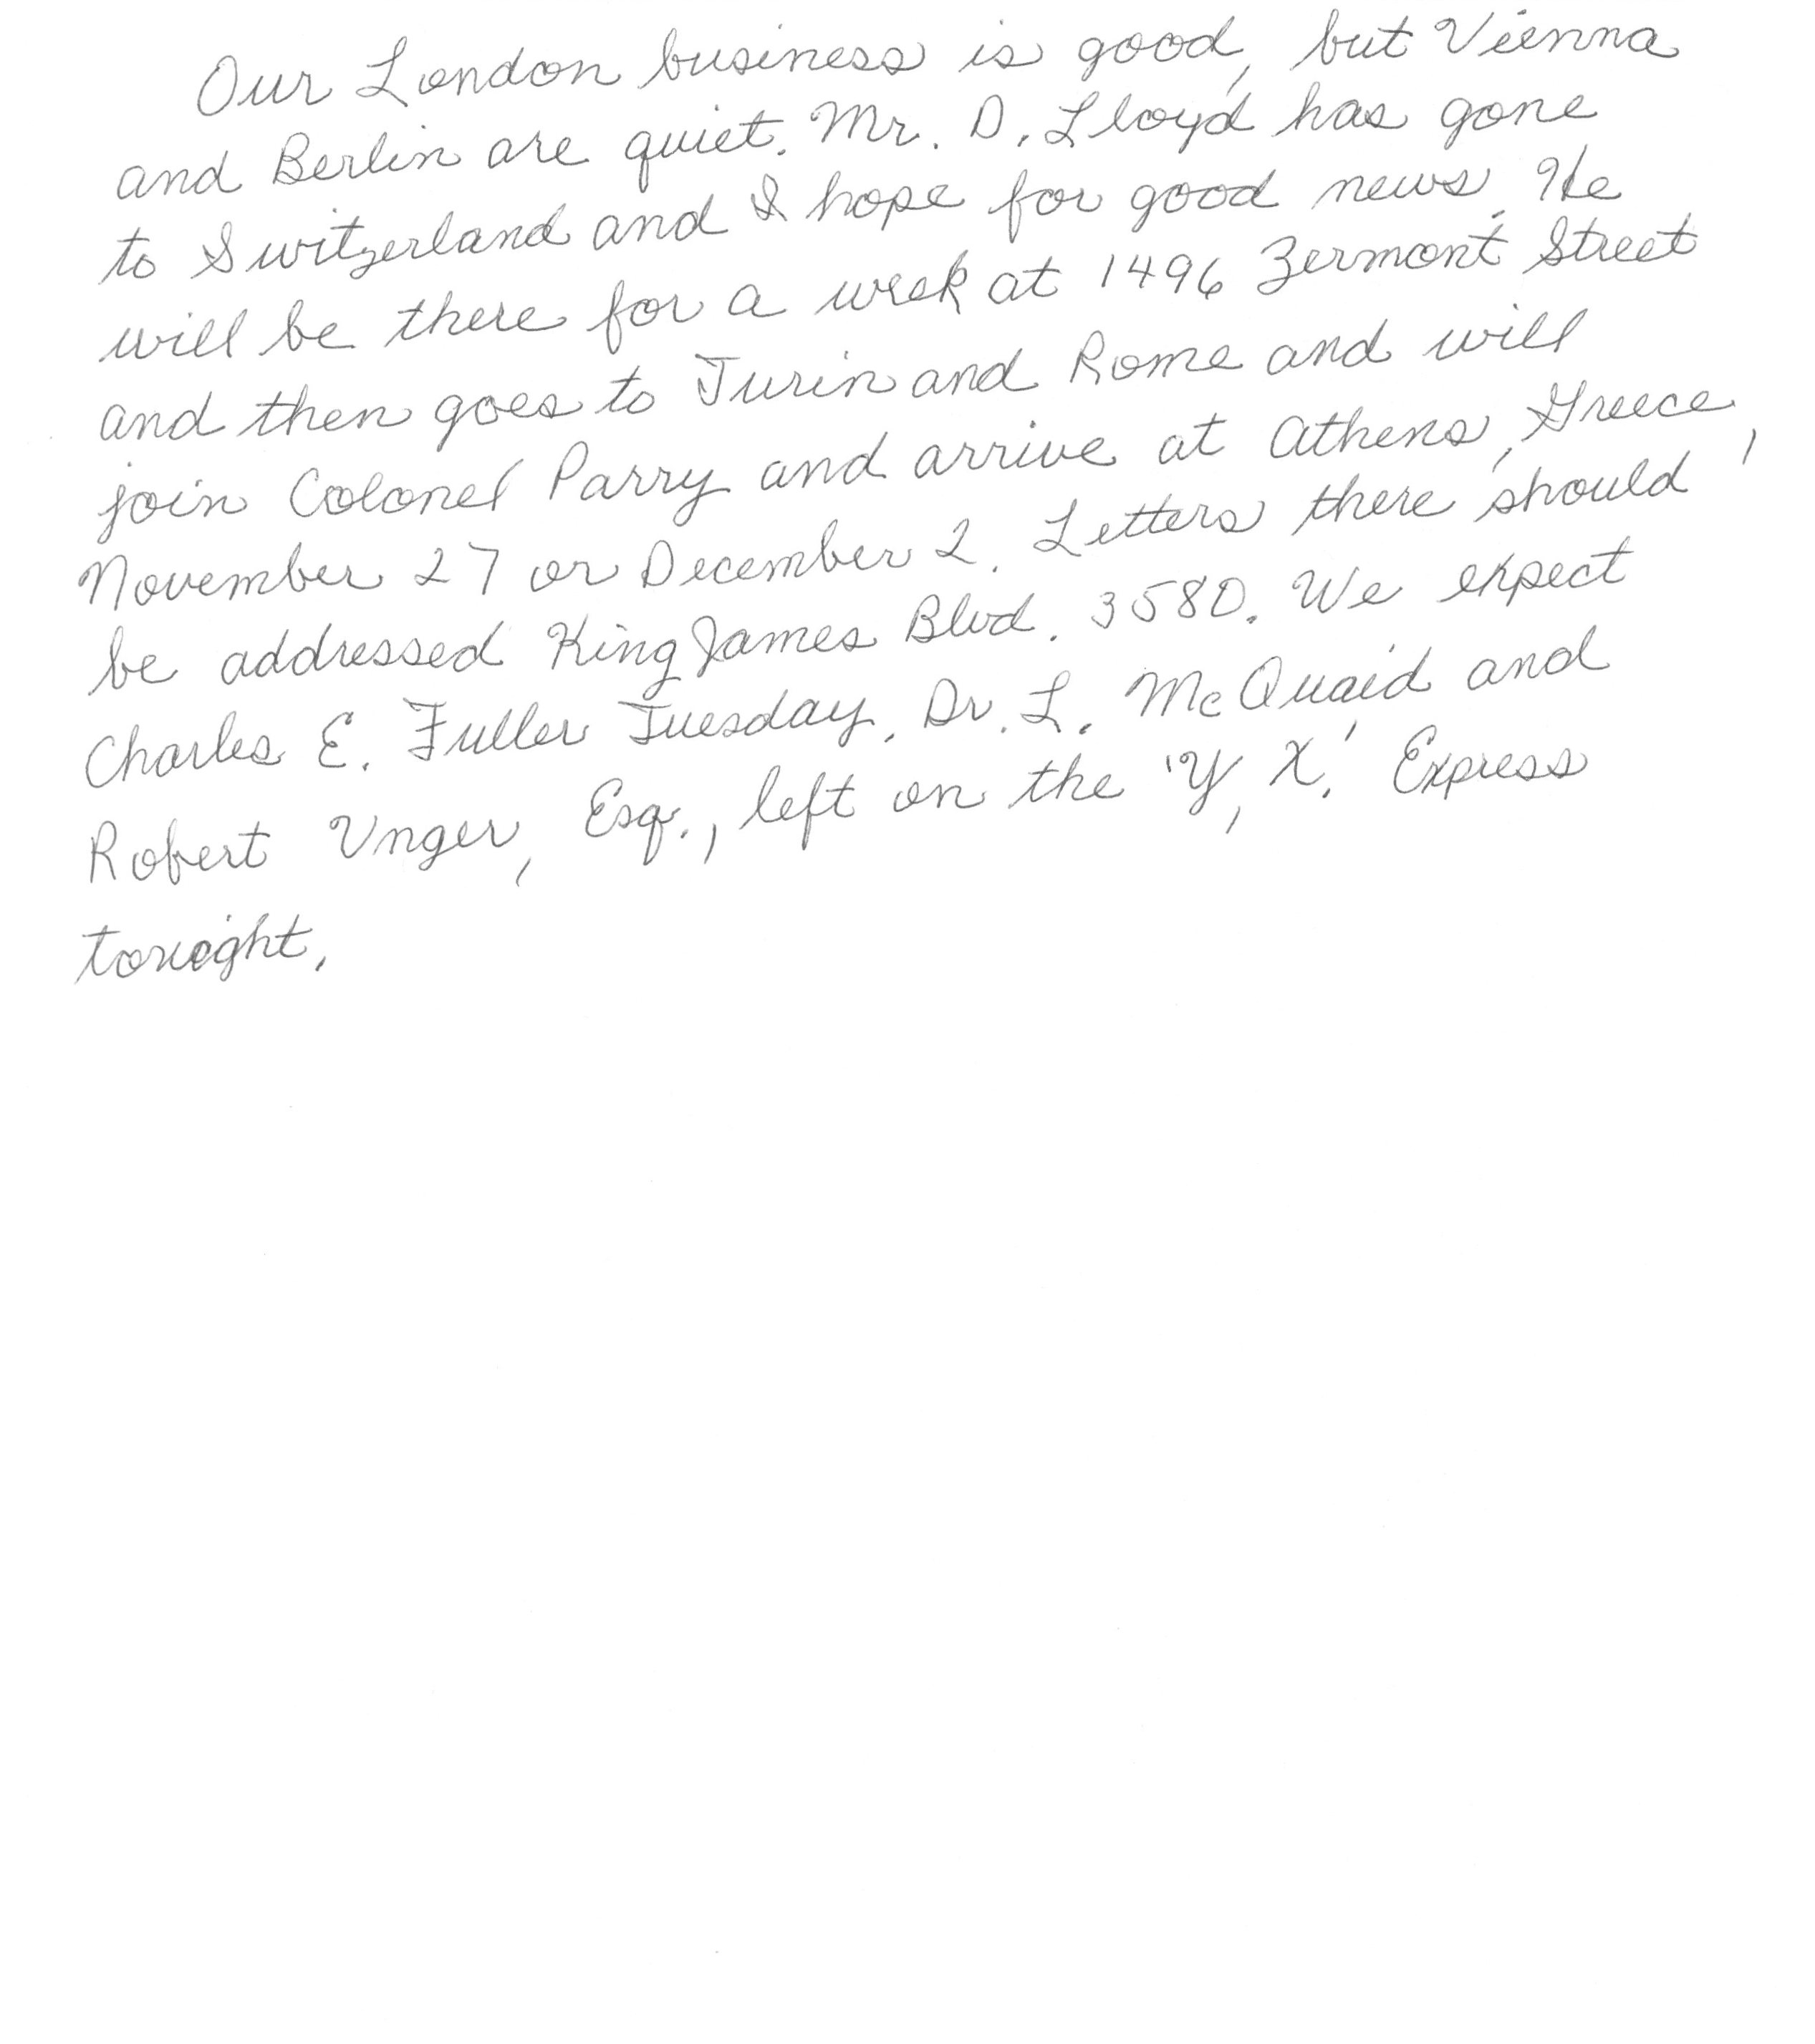 Our London business is good, but Vienna
and Berlin are quiet. Mr. D. Lloyd has gone
to Switzerland and I hope for good news. He
will be there for a week at 1496 Zermont Street
and then goes to Turin and Rome and will
join Colonel Parry and arrive at Athens, Greece,
November 27 or December 2. Letters there should
be addressed King James Blvd. 3580. We expect
Charles E. Fuller Tuesday. Dr. L. McQuaid and
Robert Unger, Esq., left on the 'Y, X.' Express
tonight.